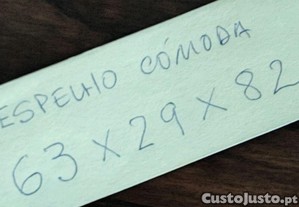 ESPELHO CÓMODA
63 x 29 x 82
CustoJusto.pt